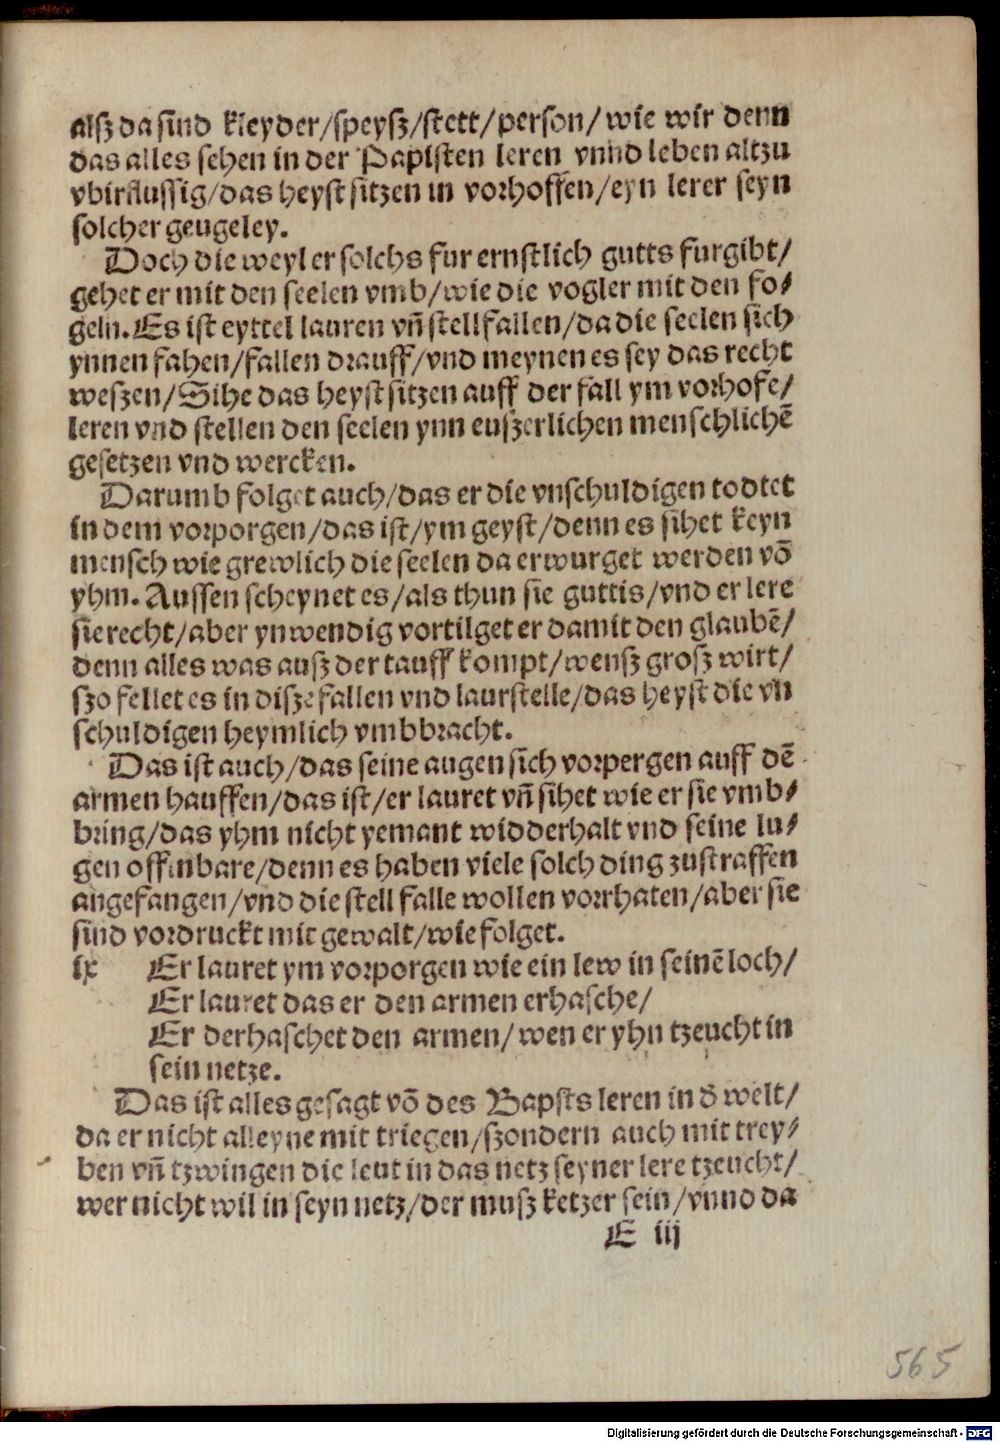 alſz da ſind kleyder/ſpeyſz/ſtett/perſon/wie wir denn
das alles ſehen in der Papiſten leren vnnd leben altzu
vbirfluſſig/das heyſt ſitzen in vorhoffen/eyn lerer ſeyn
ſolcher geugeley.
Doch die weyl er ſolchs fur ernſtlich gutts furgibt/
gehet er mit den ſeelen vmb/wie die vogler mit den fo⸗
geln. Es iſt eyttel lauren vñ ſtellfallen/da die ſeelen ſich
ynnen fahen/fallen drauff/vnd meynen es ſey das recht
weſzen/Sihe das heyſt ſitzen auff der fall ym vorhofe/
leren vnd ſtellen den ſeelen ynn euſzerlichen menſchlichē
geſetzen vnd wercken.
Darumb folget auch/das er die vnſchuldigen todtet
in dem vorporgen/das iſt/ym geyſt/denn es ſihet keyn
menſch wie grewlich die ſeelen da erwurget werden vō
yhm. Auſſen ſcheynet es/als thun ſie guttis/vnd er lere
ſie recht/aber ynwendig vortilget er damit den glaubē/
denn alles was auſz der tauff kompt/wenſz groſz wirt/
ſzo fellet es in diſze fallen vnd laurſtelle/das heyſt die vn
ſchuldigen heymlich vmbbracht.
Das iſt auch/das ſeine augen ſich vorpergen auff dē
armen hauffen/das iſt/er lauret vñ ſihet wie er ſie vmb⸗
bring/das yhm nicht yemant widderhalt vnd ſeine lu⸗
gen offinbare/denn es haben viele ſolch ding zuſtraffen
angefangen/vnd die ſtell falle wollen vorrhaten/aber ſie
ſind vordruckt mit gewalt/wie folget.
ix Er lauret ym vorporgen wie ein lew in ſeinē loch/
Er lauret das er den armen erhaſche/
Er derhaſchet den armen/wen er yhn tzeucht in
ſein netze.
Das iſt alles geſagt vō des Bapſts leren in d̄ welt/
da er nicht alleyne mit triegen/ſzondern auch mit trey⸗
ben vñ tzwingen die leut in das netz ſeyner lere tzeucht/
wer nicht wil in ſeyn netz/der muſz ketzer ſein/vnnd da
E iij
565
Digitalisierung gefördert durch die Deutsche Forschungsgemeinschaft - DFG